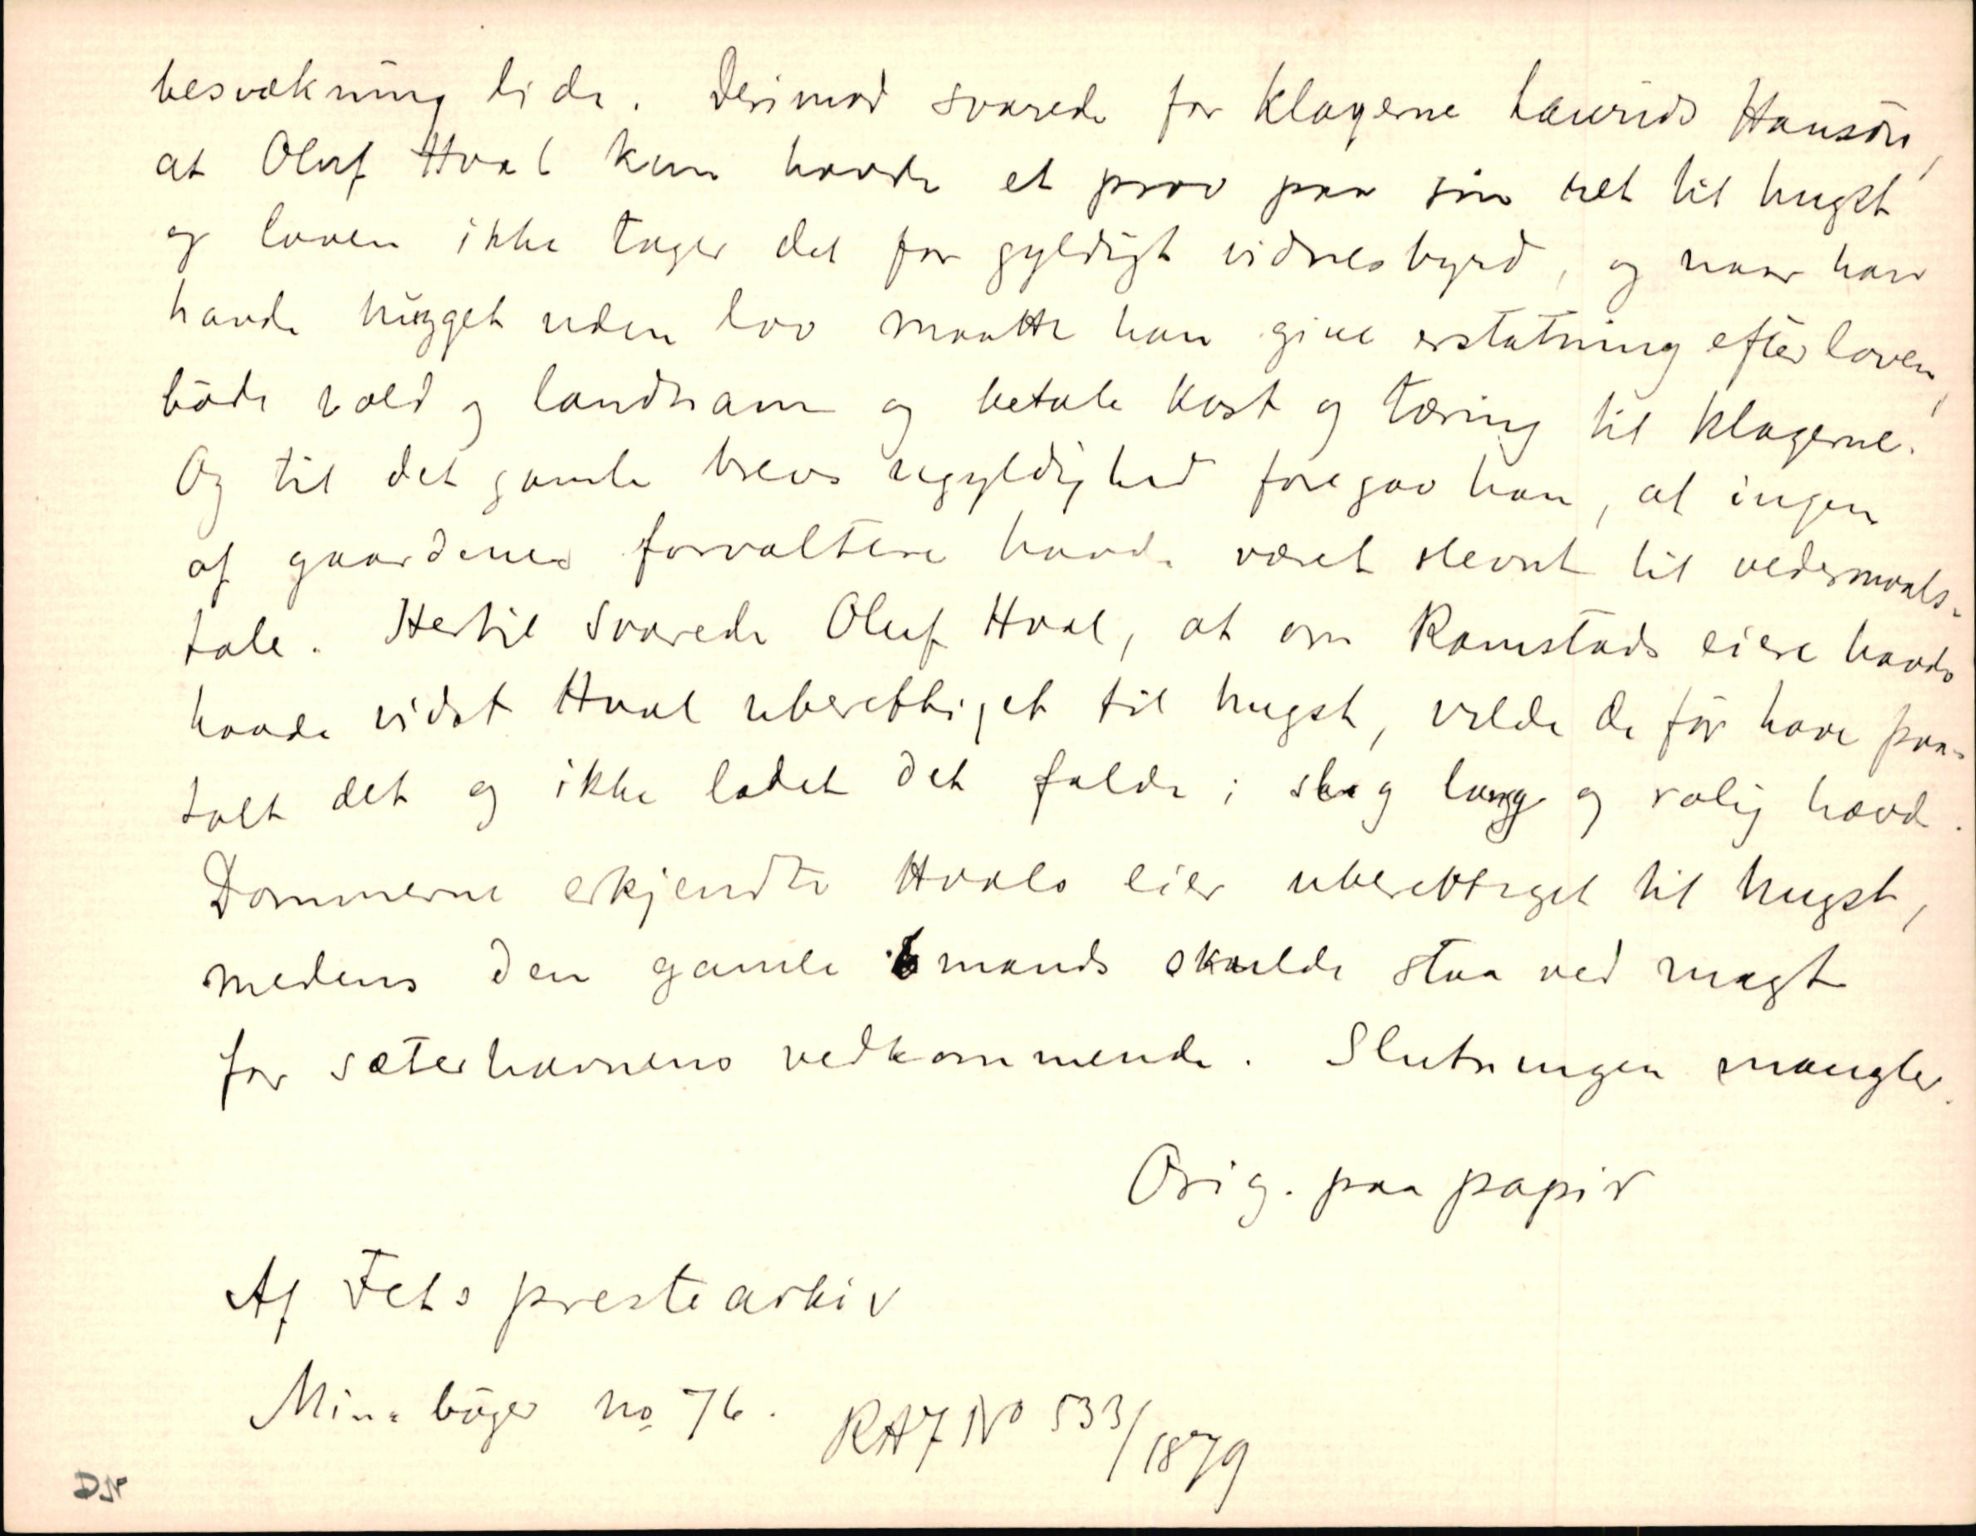 besvækning lide. Derimod svarede for klagerne Laurids Hansön,
at Oluf Hval kun havde et prov paa sin ret til hugst
og loven ikke tager det for gyldigt vidnesbyrd, og naar han
havde hugget uden lov maatte han give erstatning efter loven,
både vold og landnam og betale kost og tæring til klagerne.
Og til det gamle brevs ugyldighed foregav han, at ingen
af gaardenes forvaltere havde været stevnt til vedermaals-
tale. Hertil svarede Oluf Hval, at om Ramstads eiere havde
havde vidst Hval uberettiget til hugst, vilde de för have paa-
talt det og ikke ladet det falde i slig lang og rolig hævd.
Dommerne erkjendte Hvals eier uberettiget til hugst,
medens den gamle 6 mands skulde staa ved magt
for sæterhavnens vedkommende. Slutningen mangler.
Orig. paa papir
Af Fets prestearkiv
Min. böger no 76. RA7 No 533/1879
DN